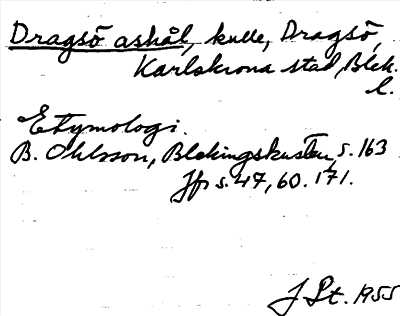 Dragsö askål, kulle, Dragsö,
Karlskrona stad, Blek.
l.
Etymologi.
B. Ohlsson, Blekingskusten, s. 163
Jfr s. 47, 60. 171.
J St. 1955